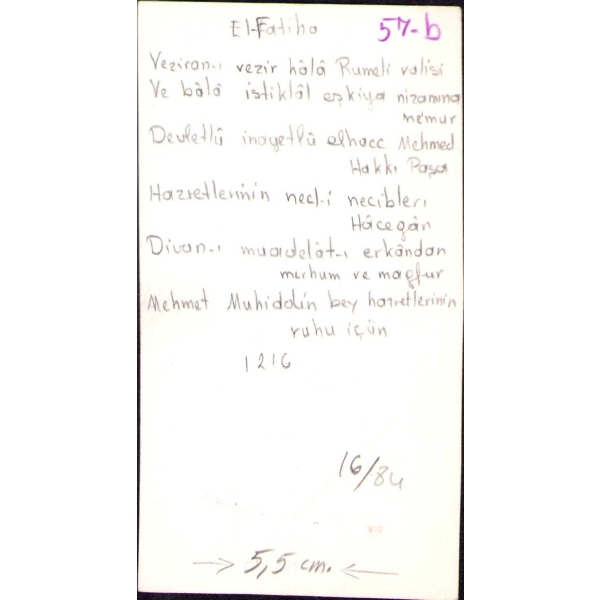 El-Fatiha 57-b
Veziran-ı vezir hâlâ Rumeli valisi
Ve bâlâ istiklâl eşkiya nizamına
me'mur
Devletlû inayetlû elhacc Mehmed
Hakkı Paşa
Hazretlerinin necl-i necibleri
Hâcegân
Divan-ı muadelât-ı erkândan
merhum ve mağfur
Mehmet Muhiddin bey hazretlerinin
ruhu içün
1216
16/84
→ 5,5 cm. ←